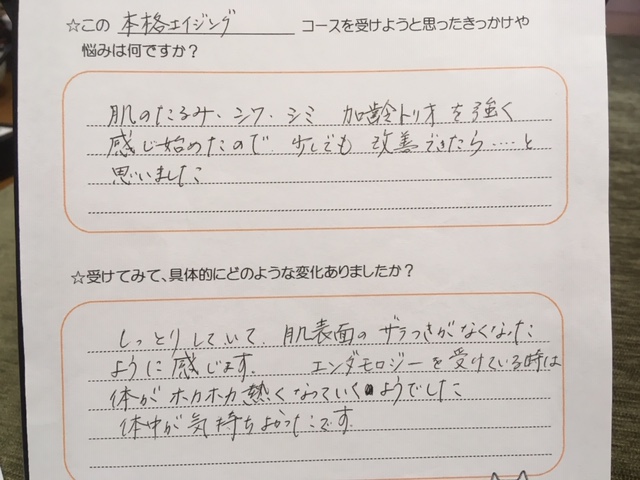 ☆この 本格エイジング コースを受けようと思ったきっかけや
悩みは何ですか？
肌のたるみ・シワ・シミ 加齢トリオ を強く
感じ始めたので、少しでも 改善できたら……と
思いました
☆受けてみて、具体的にどのような変化ありましたか？
しっとりしていて、肌表面の ザラつきがなくなった
ように感じます。 エンダモロジーを受けている時は
体がホカホカ熱くなっていくようでした
体中が気持ちよかったです。